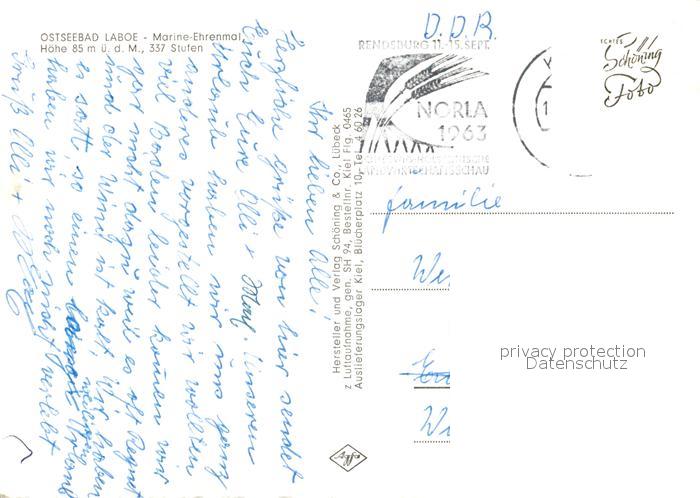 OSTSEEBAD LABOE - Marine-Ehrenmal
Höhe 85 m ü. d. M., 337 Stufen
D.D.R.
RENDSBURG 11.-15. SEPT.
NORLA
1963
SCHLESWIG-HOLSTEINISCHE
LANDWIRTSCHAFTSSCHAU
ECHTES
Schöning
Foto
Ihr lieben Alle!
Herzliche Grüße von hier sendet
Euch Eure Elli +
Unseren
Urlaub haben wir uns ganz
anders vorgestellt wir wollten
viel Baden leider kommen wir
gar nicht dazu weil es oft Regnet
und der Wind ist kalt Wir haben
es satt, so einen
haben wir noch nicht verlebt
Gruß Elli +
Hersteller und Verlag Schöning & Co., Lübeck
z Luftaufnahme, gen. SH 94, Bestellnr. Kiel Fig. 0465
Auslieferungslager Kiel, Blücherplatz 10, Tel. 4 60 26
Familie
We
Wi
privacy protection
Datenschutz
Agfa